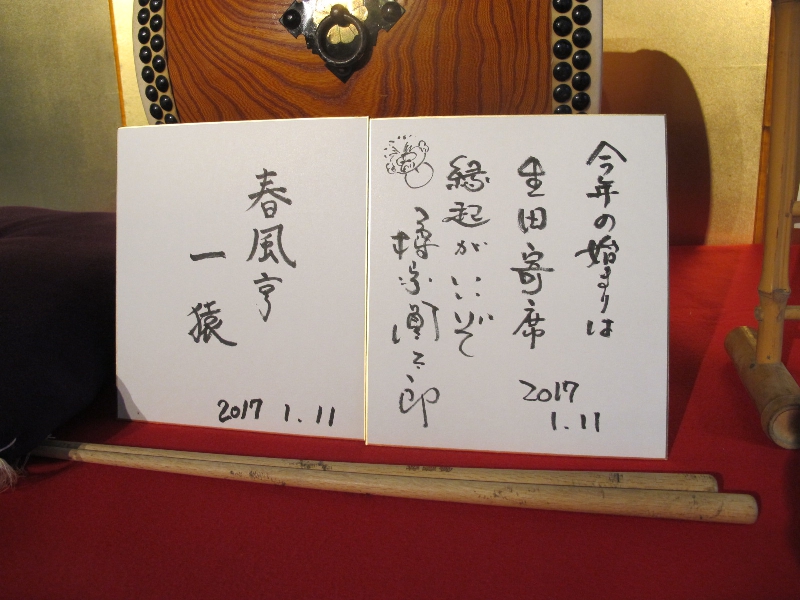 今年の始まりは
生田寄席
縁起がいいぞ
橘家圓太郎
2017
1.11
春風亭
一猿
2017 1.11